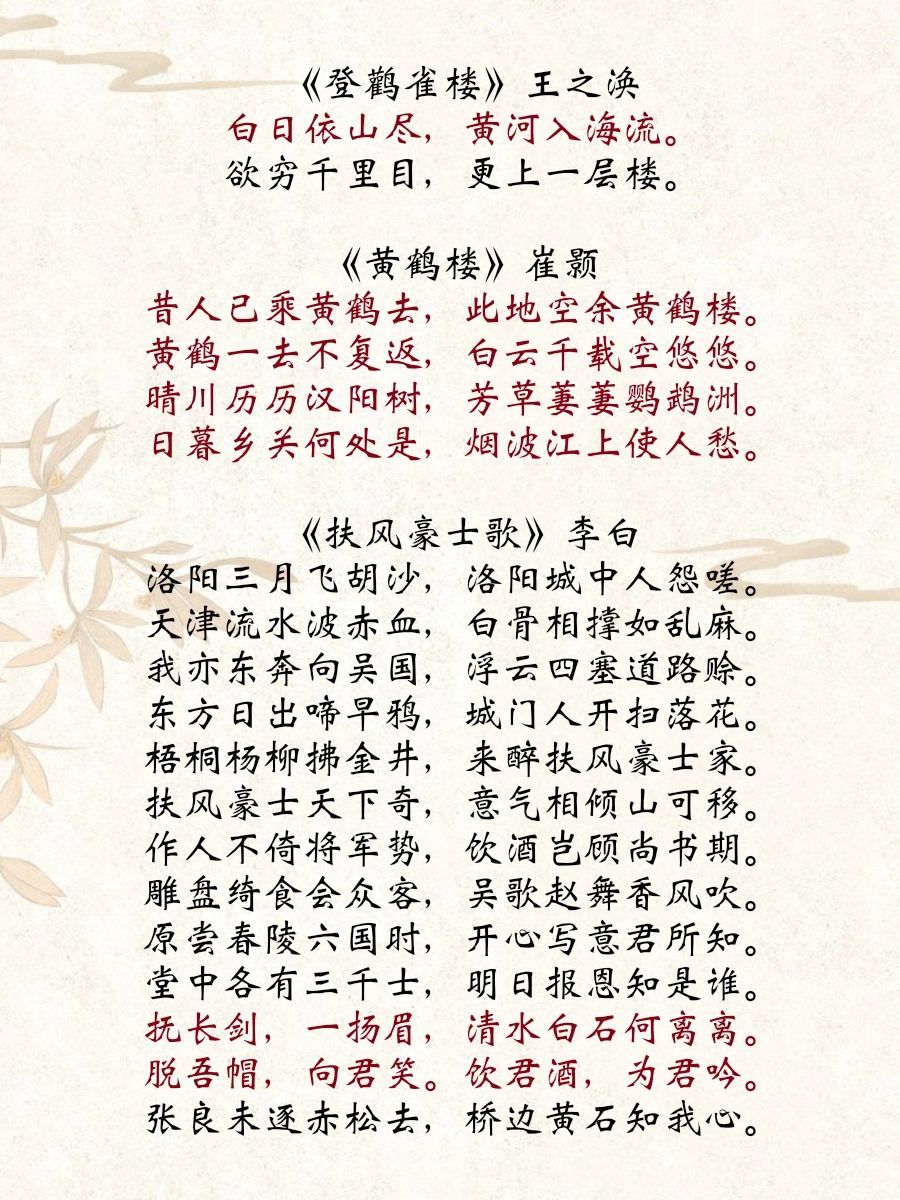 《登鹳雀楼》王之涣
白日依山尽，黄河入海流。
欲穷千里目，更上一层楼。
《黄鹤楼》崔颢
昔人已乘黄鹤去，此地空余黄鹤楼。
黄鹤一去不复返，白云千载空悠悠。
晴川历历汉阳树，芳草萋萋鹦鹉洲。
日暮乡关何处是，烟波江上使人愁。
《扶风豪士歌》李白
洛阳三月飞胡沙，洛阳城中人怨嗟。
天津流水波赤血，白骨相撑如乱麻。
我亦东奔向吴国，浮云四塞道路赊。
东方日出啼早鸦，城门人开扫落花。
梧桐杨柳拂金井，来醉扶风豪士家。
扶风豪士天下奇，意气相倾山可移。
作人不倚将军势，饮酒岂顾尚书期。
雕盘绮食会众客，吴歌赵舞香风吹。
原尝春陵六国时，开心写意君所知。
堂中各有三千士，明日报恩知是谁。
抚长剑，一扬眉，清水白石何离离。
脱吾帽，向君笑。饮君酒，为君吟。
张良未逐赤松去，桥边黄石知我心。